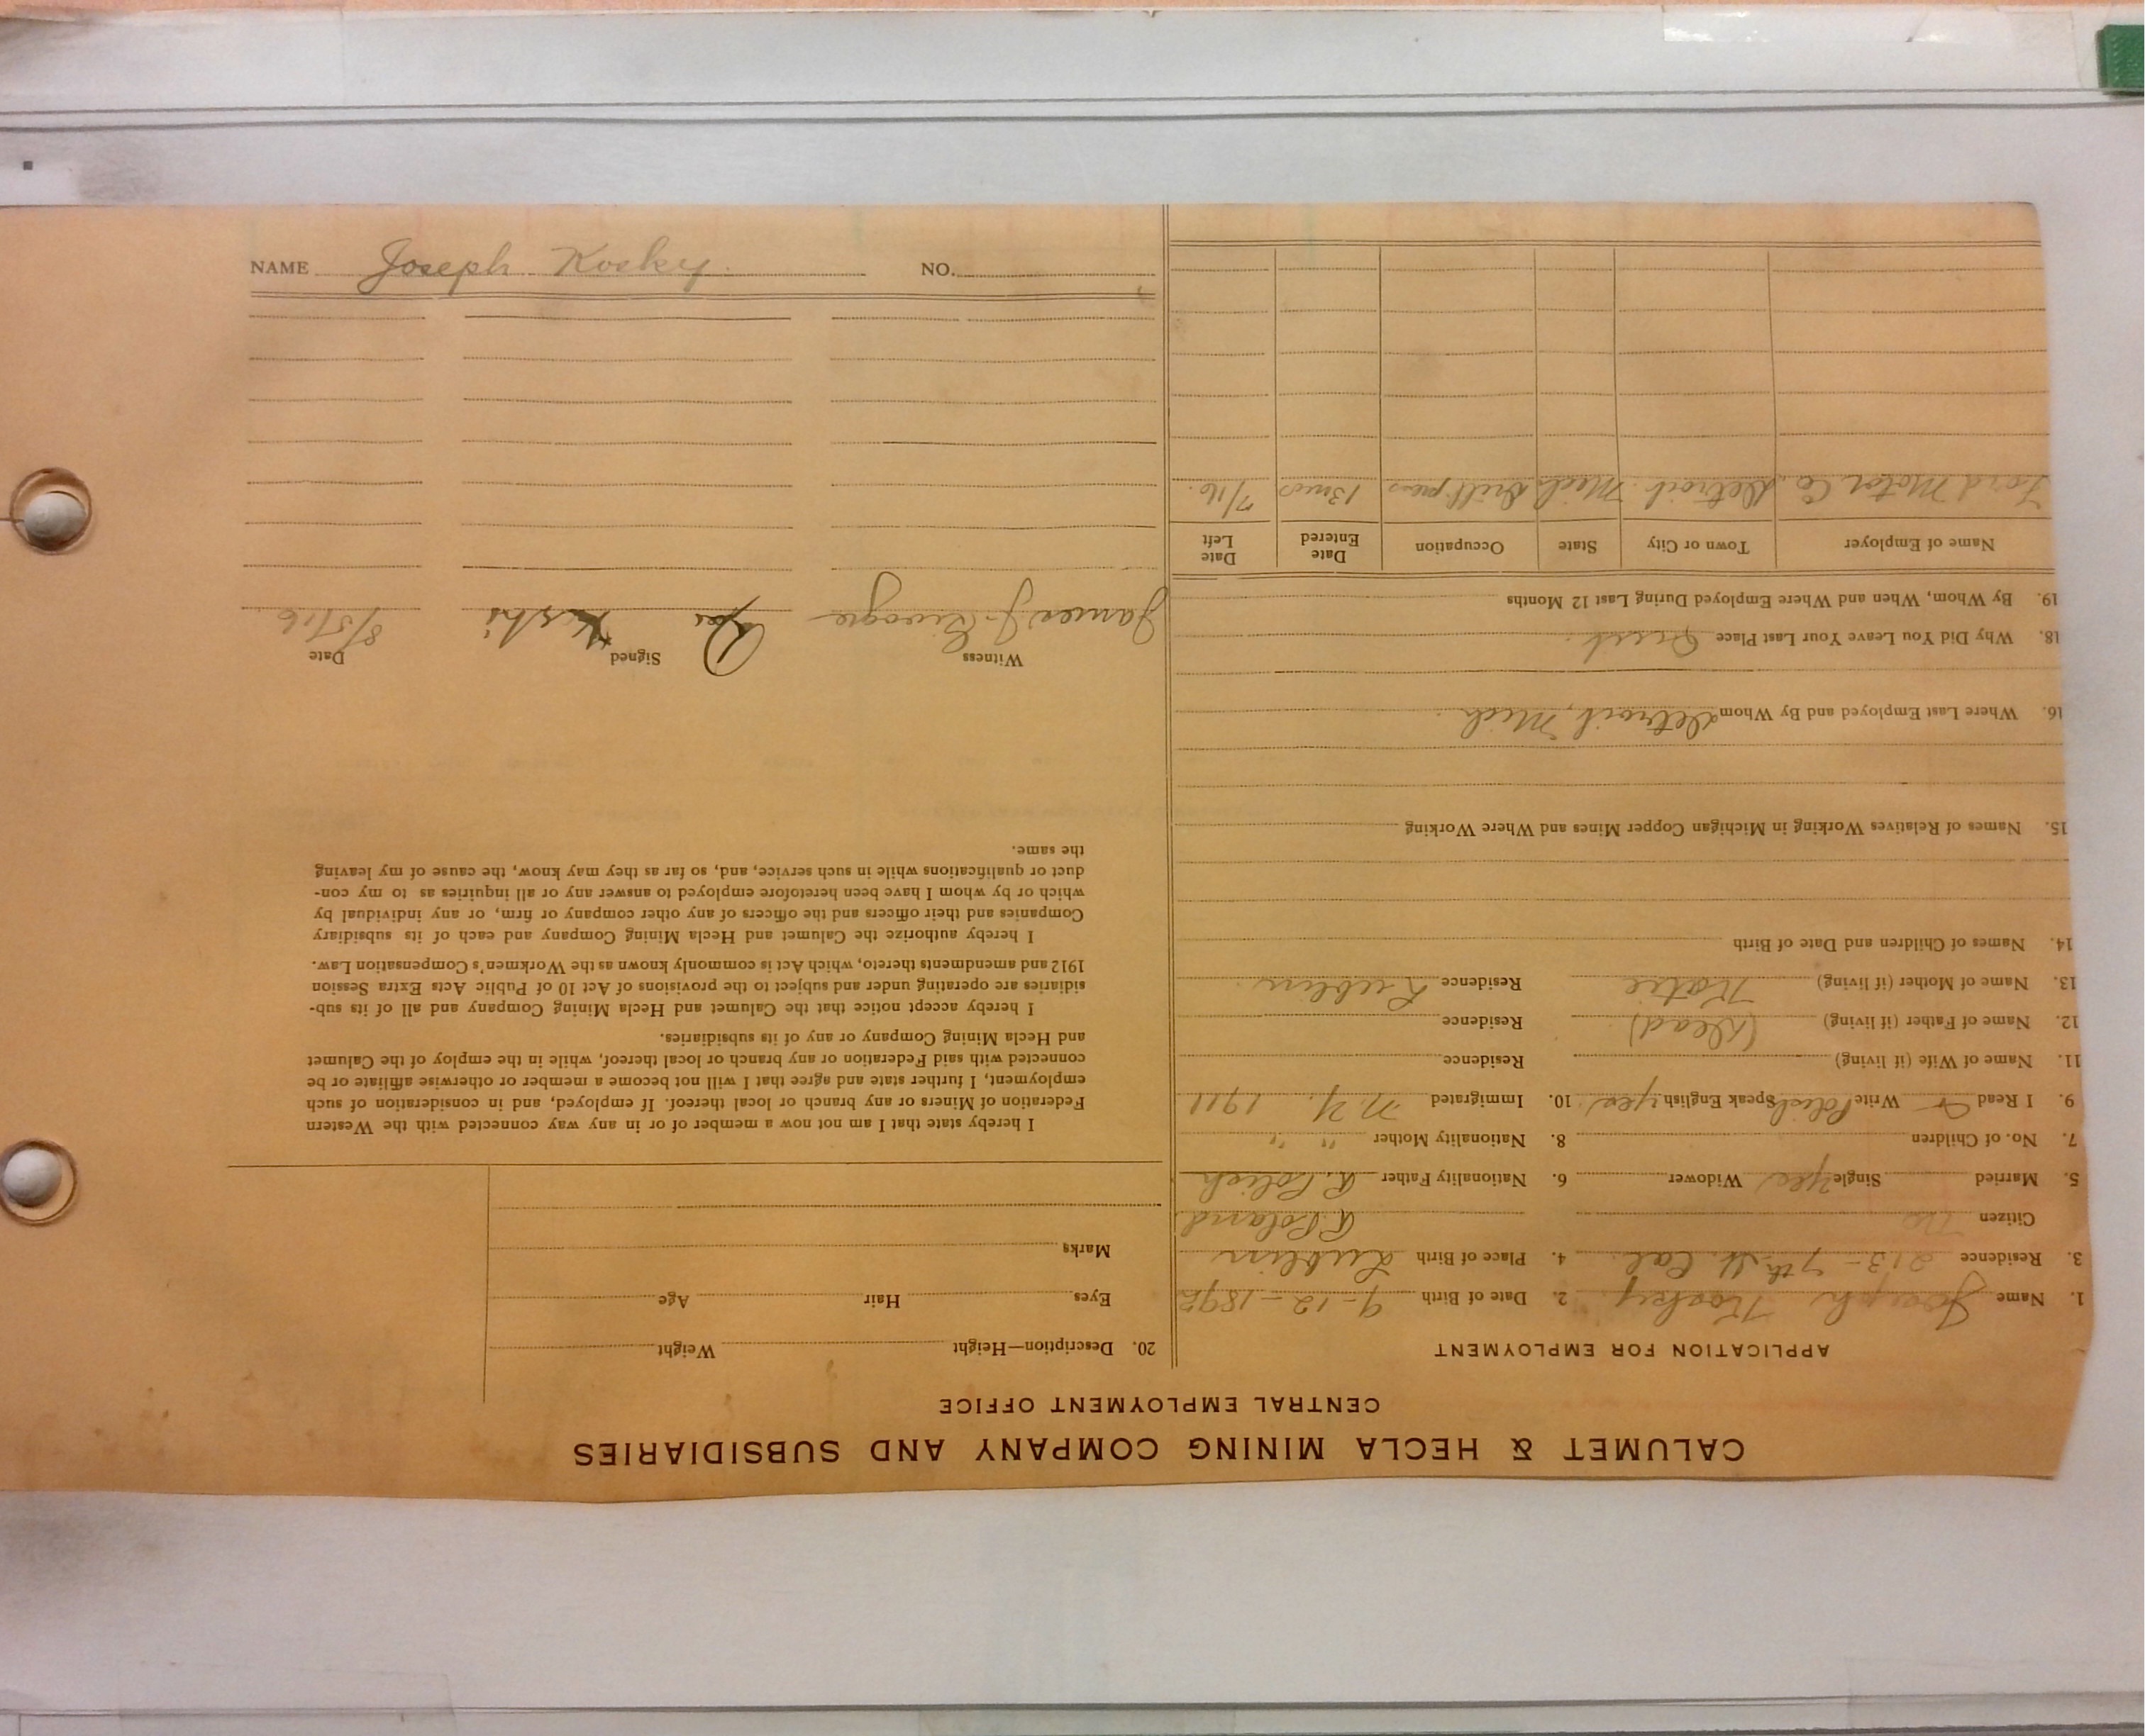 CALUMET & HECLA MINING COMPANY AND SUBSIDIARIES
CENTRAL EMPLOYMENT OFFICE
APPLICATION FOR EMPLOYMENT
1. Name Joseph Kosky. 2. Date of Birth 9-12-1892
3. Residence 213-7th St. Cal. 4. Place of Birth Lublin
Citizen No R. Poland
5. Married Single Yes Widower 6. Nationality Father R. Polish
7. No. of Children 8. Nationality Mother " "
9. I Read & Write Polish Speak English yes 10. Immigrated N.Y. 1911
11. Name of Wife (if living) Residence
12. Name of Father (if living) (Dead) Residence
13. Name of Mother (if living) Katie Residence Lublin.
14. Names of Children and Date of Birth
15. Names of Relatives Working in Michigan Copper Mines and Where Working
16. Where Last Employed and By Whom Detroit, Mich.
18. Why Did You Leave Your Last Place Quit.
19. By Whom, When and Where Employed During Last 12 Months
Name of Employer Town or City State Occupation Date Entered Date Left
Ford Motor Co. Detroit Mich Drill press 13 mos 7/16.
20. Description—Height Weight
Eyes Hair Age
Marks
I hereby state that I am not now a member of or in any way connected with the Western
Federation of Miners or any branch or local thereof. If employed, and in consideration of such
employment, I further state and agree that I will not become a member or otherwise affiliate or be
connected with said Federation or any branch or local thereof, while in the employ of the Calumet
and Hecla Mining Company or any of its subsidiaries.
I hereby accept notice that the Calumet and Hecla Mining Company and all of its sub-
sidiaries are operating under and subject to the provisions of Act 10 of Public Acts Extra Session
1912 and amendments thereto, which Act is commonly known as the Workmen's Compensation Law.
I hereby authorize the Calumet and Hecla Mining Company and each of its subsidiary
Companies and their officers and the officers of any other company or firm, or any individual by
which or by whom I have been heretofore employed to answer any or all inquiries as to my con-
duct or qualifications while in such service, and, so far as they may know, the cause of my leaving
the same.
Witness Signed Date
James J. Jos 8/5/16
NAME Joseph Kosky. NO.